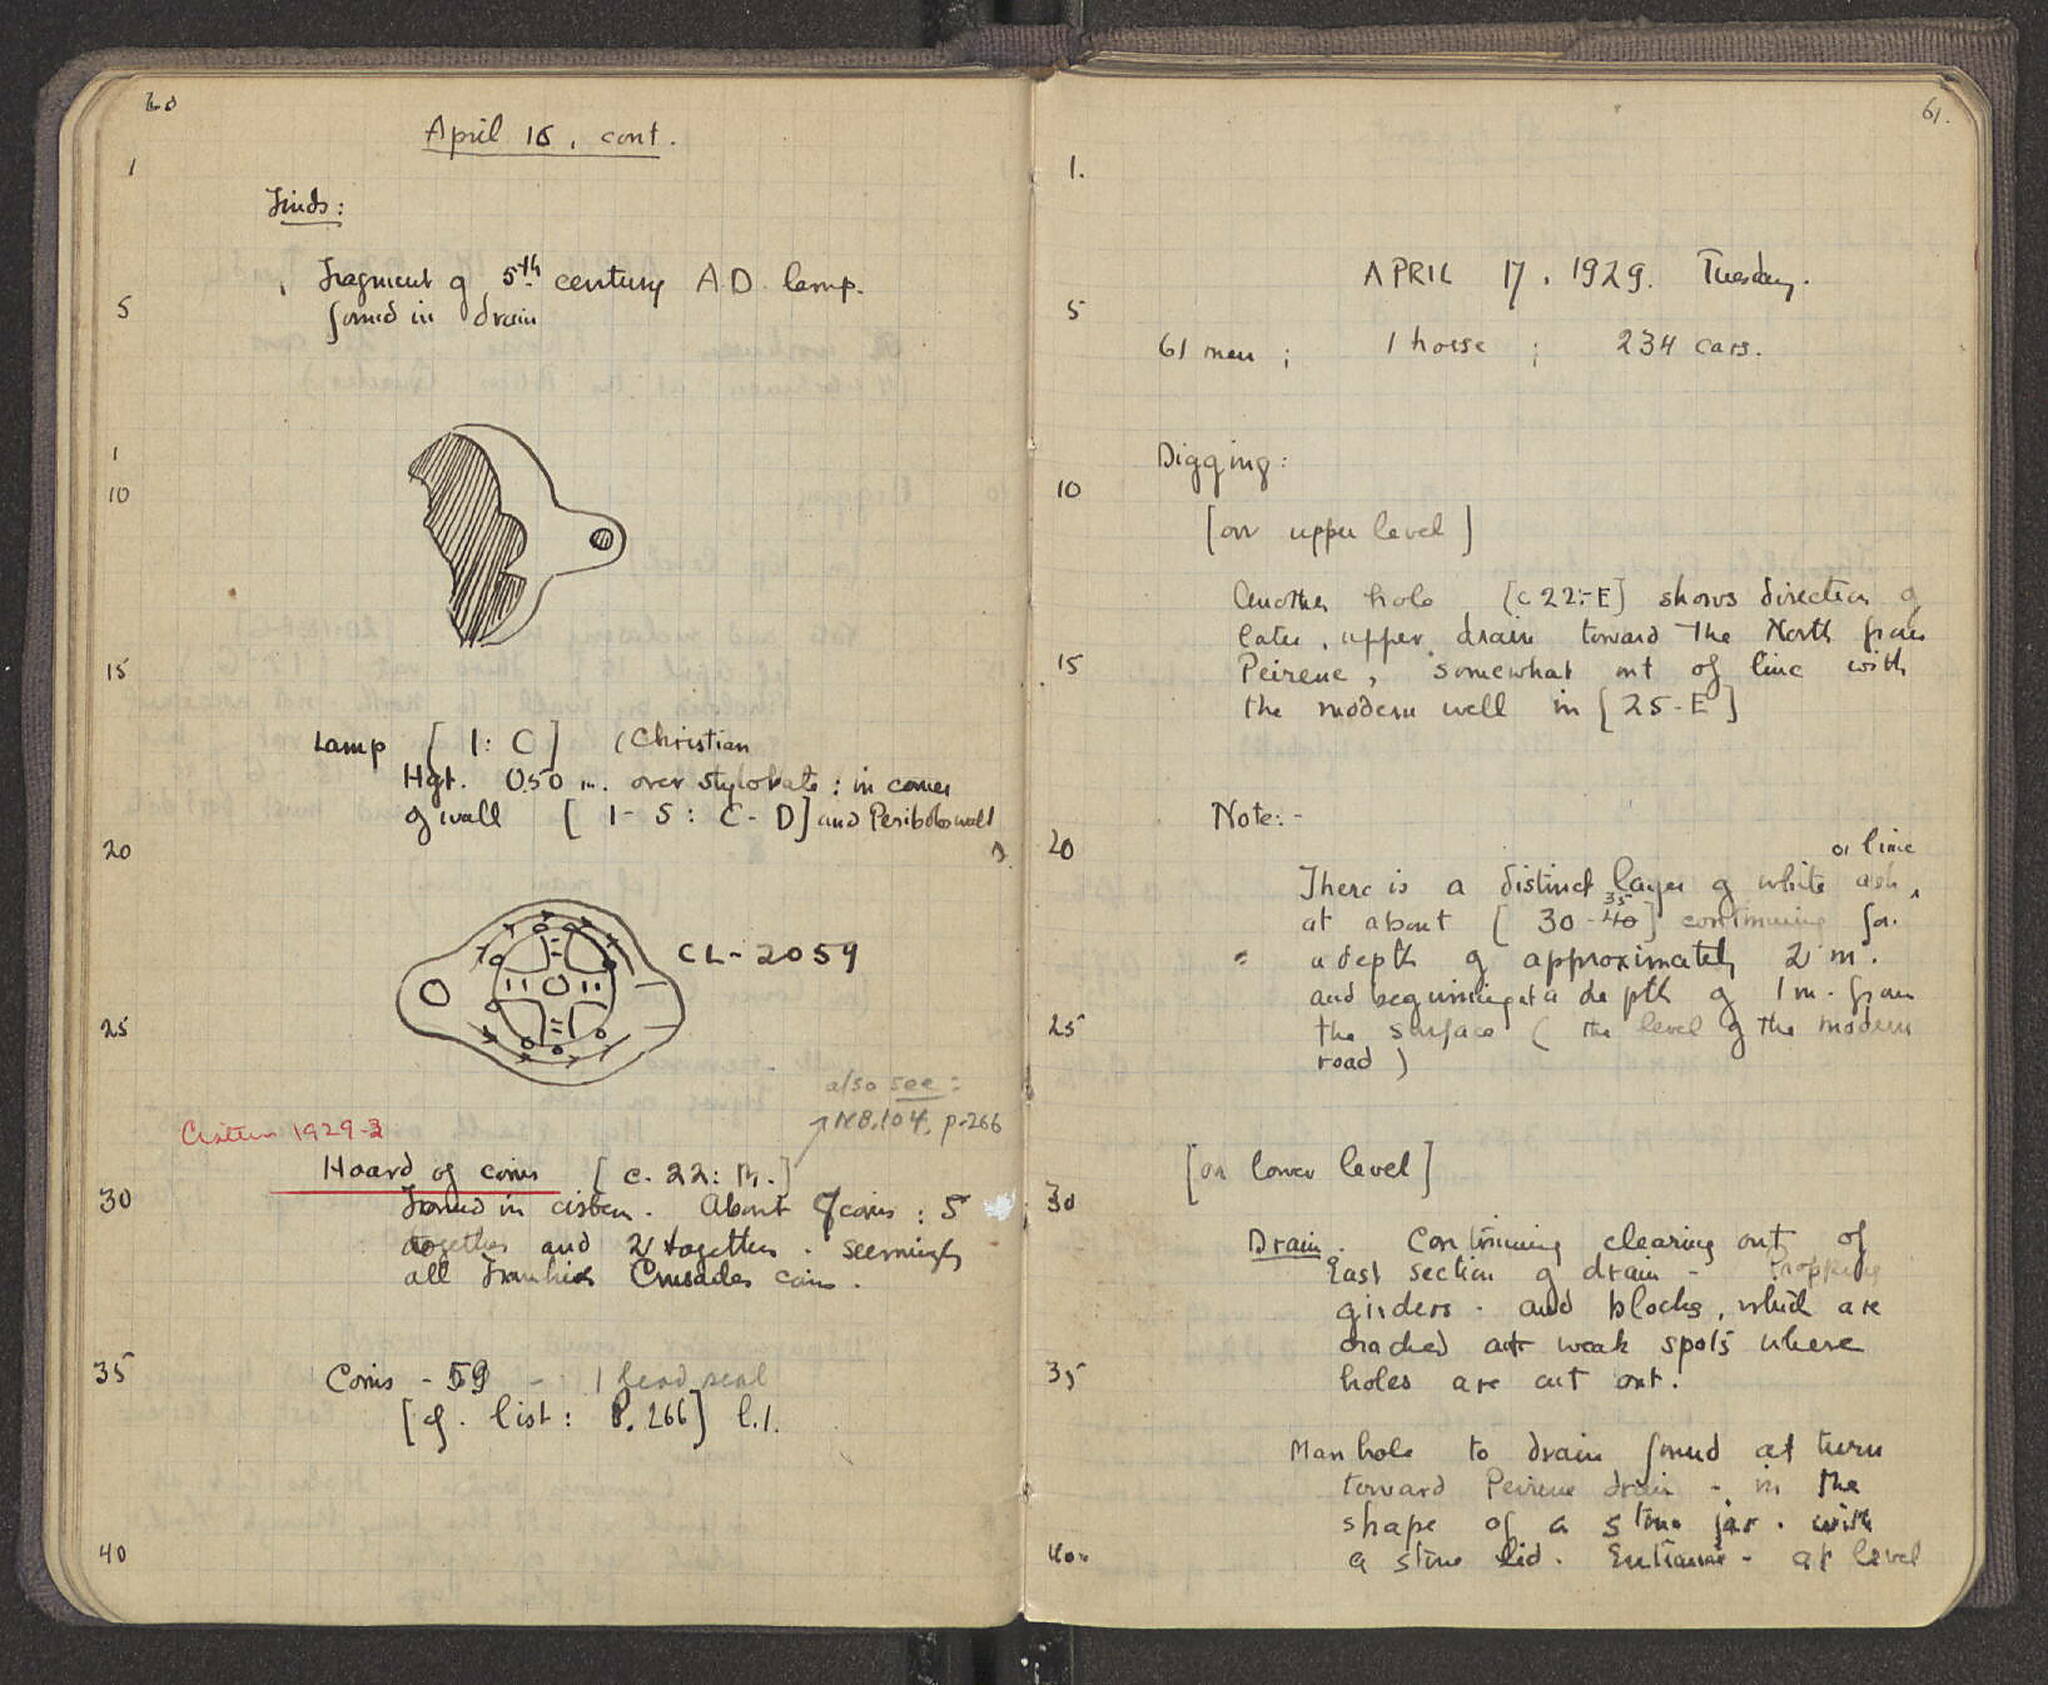 60
April 16, cont.
1
Finds:
Fragment of 5th century A.D. lamp.
5
found in drain
1
10
15
Lamp [1: C] (Christian
Hgt. 0.50 m. over stylobate: in corner
of wall [1-5: C-D] and Peribolos wall
20
CL-2059
25
also see:
NB.104, p.266
Cistern 1929-3
Hoard of coins [c. 22: B.]
30
Found in cistern. About 7 coins: 5
together and 2 together. seemingly
all Frankish Crusades coins.
35
Coins - 59 - 1 lead seal
[cf. list: P. 266] l.1.
40
61.
1.
APRIL 17, 1929. Tuesday.
5
61 men; 1 horse; 234 cars.
Digging:
10
[on upper level]
Another hole [c 22:-E] shows direction of
later, upper drain toward the North from
15
Peirene, somewhat out of line with
the modern well in [25-E]
Note:-
20
or lime
There is a distinct layer of white ash,
35
at about [30-40] continuing for
a depth of approximately 2 m.
and beginning at a depth of 1 m. from
25
the surface (the level of the modern
road)
[on lower level]
30
Drain. Continuing clearing out of
East section of drain - Propping
girders. and blocks, which are
cracked at weak spots where
35
holes are cut out.
Manhole to drain found at turn
toward Peirene drain - in the
shape of a stone jar. with
40
a stone lid. Entrance - at level